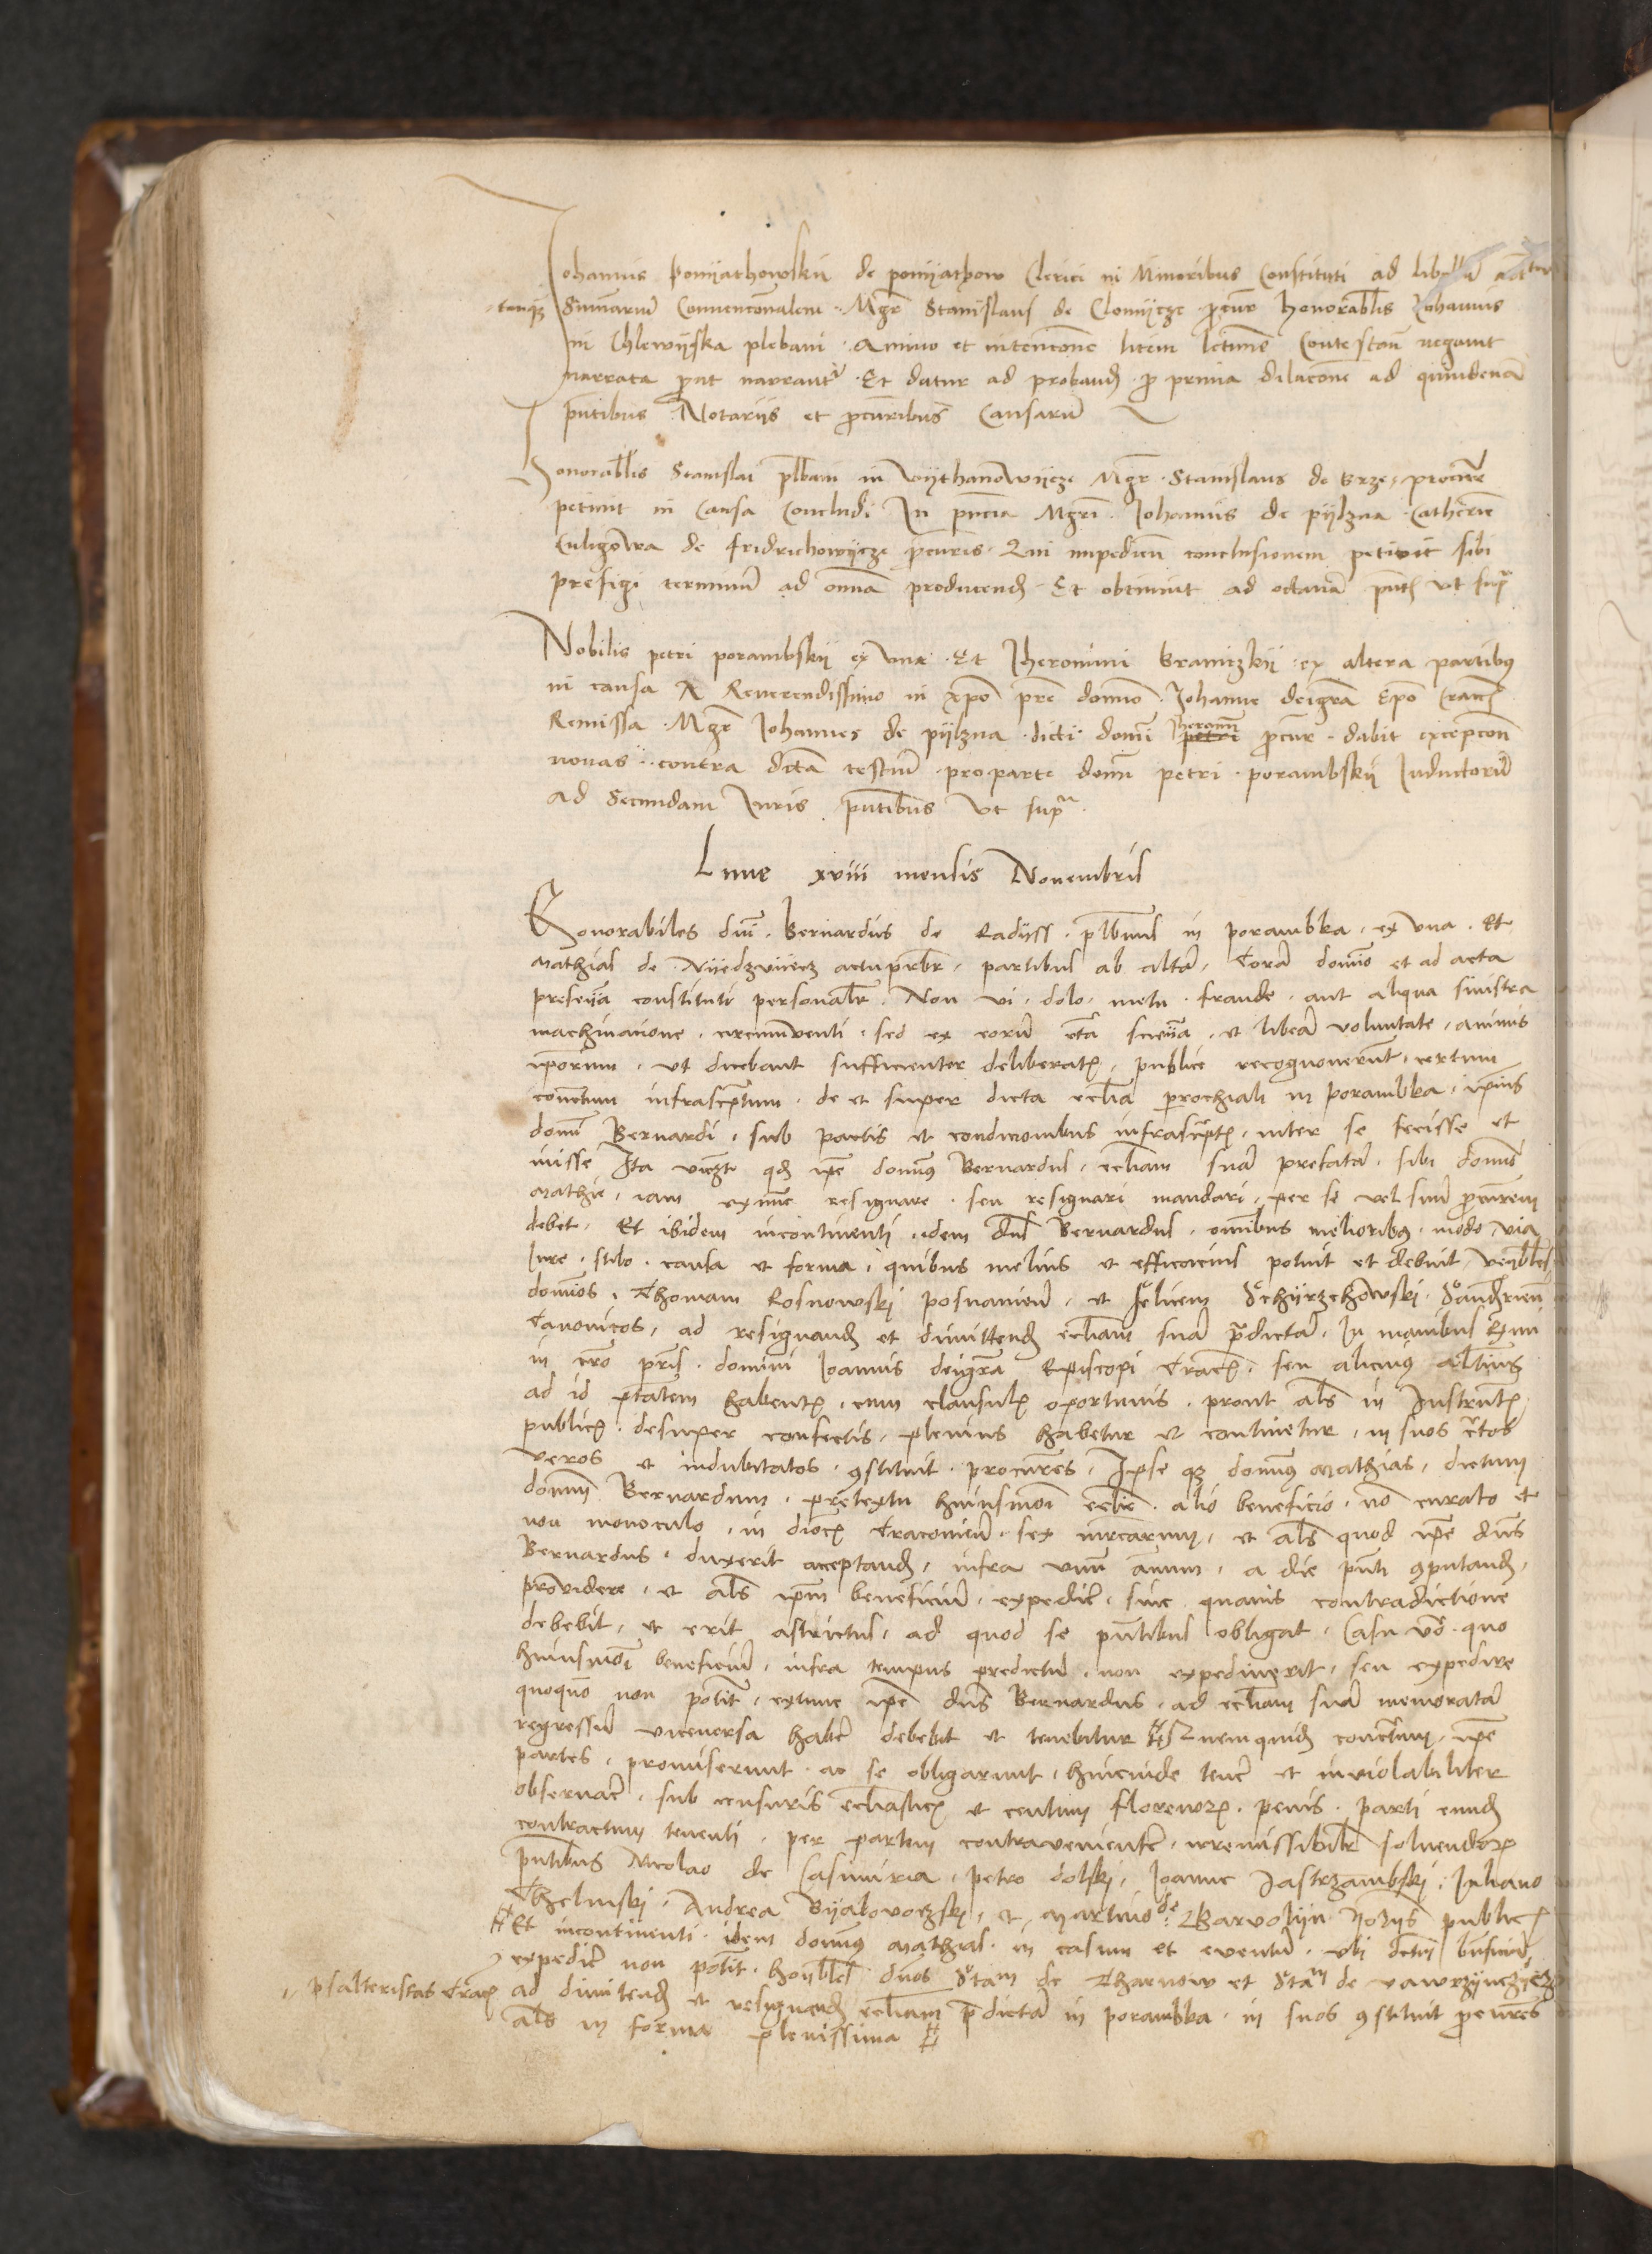 Johannis Pomyathowskii de pomyathow Clerici in Minoribus Constituti ad libellum
tanquam Summarium Convencionalem Mgr Stanislaus de Clomycze procur honorabilis Johannis
in Chlewyska plebani animo et intencione litem letime Contestan negavit
narrata prout narrantur Et datur ad proband pro prima dilacione ad quindenam
pntibus Notariis et procuribus Causarum
Honorabilis Stanislai plbani in Wythanowycze Mgr Stanislaus de Brze procur
petivit in Causa Concludi In pncia Mgri Johannis de pylzna Catherine
Culigowa de fridrichowycze procuris Qui impedien conclusionem petivit sibi
prefigi terminum ad omnia producend Et obtinuit ad octavam pntibus ut supra
Nobilis petri porambskii ex una Et Jheronimi Branizkii ex altera partibus
in causa A Reverendissimo in xpo pre domino Johanne dei gra Epo Cracoviensi
Remissa Mgr Johannes de pylzna dicti domini petri Jheronimi procur dabit excepcion
novas contra dicta testium pro parte domini petri porambskii Inductorum
ad Secundam Juris pntibus ut supra
Lune xviii mensis Novembris
Honorabiles dni Bernardus de Radyss plbanus in porambka ex una Et
Mathias de Nyedzwiecz actu prbr partibus ab altera Coram domino et ad acta
presencia constituti personaliter Non vi dolo metu fraude aut aliqua sinistra
machinatione circumventi sed ex eorum certa sciencia et libera voluntate animis
ipsorum ut dicebant sufficienter deliberatis publice recognoverunt certum
contractum infrascriptum de et super dicta ecclia parochiali in porambka ipsius
domini Bernardi sub pactis et condicionibus infrascriptis inter se fecisse et
inisse Ita videlicet quod ipse dominus Bernardus eccliam suam prefatam sibi domino
Mathie iam extunc resignare seu resignari mandari per se vel suum procuratorem
debet Et ibidem incontinenti idem dns Bernardus omnibus melioribus modo via
Jure stilo causa et forma quibus melius et efficacius potuit et debuit venerabiles
dominos Thomam Rosnowski posnaniensem et felicem Schyrzchowski Sandomiriensem
Canonicos ad resignand et dimittend eccliam suam predictam In manibus Rmi
in xpo pris domini Joannis dei gra Episcopi Craco seu alicuius alterius
ad id ptatem habentis cum clausulis oportunis prout als in Instrumentis
publicis desuper confectis plenius habetur et continetur in suos certos
veros et indubitatos constituit procuratores Ipseque dominus Mathias dictum
dominum Bernardum pretextu huiusmodi ecclie alio beneficio non curato et
non monoculo in dioc Cracoviensi sex marcarum et als quod ipse dns
Bernardus duxerit acceptand infra unum annum a die pnti computand
providere et als ipsum beneficium expedire sine quavis contradictione
debebit et erit astrictus ad quod se pntibus obligat Casu vero quo
huiusmodi beneficium infra tempus predictum non expediverit seu expedire
quoquo non poterit extunc ipse dns Bernardus ad eccliam suam memoratam
regressum viceversa habere debebit et tenebitur Quemquidem contractum ipse
partes promiserunt ac se obligarunt hincinde tenere et inviolabiliter
observare sub censuris eccliasticis et centum florenorum penis parti eundem
contractum tenenti per partem contravenientem irremissibiliter solvendorum
pntibus Nicolao de Casimiria petro dolski Joanne Jastrzambski Juliano
Chelmski Andrea Byalovoczski et Martino de Zkarvolyn Notariis publicis
Et incontinenti idem dominus Mathias in casum et eventum ubi dictum beneficium
expedire non poterit honorabiles dnos Stam de Tharnow et Stam de vawrzynczycze
psalteristas Craco ad dimitend et resignand eccliam predictam in porambka in suos constituit procuratores
als in forma plenissima